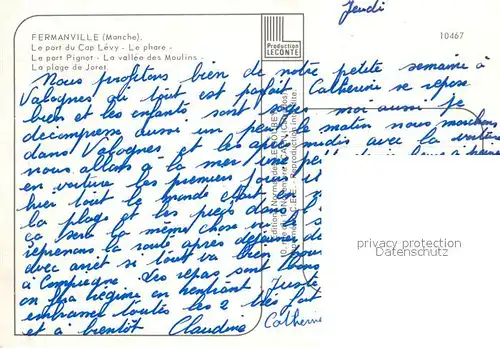 Jeudi
FERMANVILLE (Manche).
Le port du Cap Lévy - Le phare -
Le port Pignot - La vallée des Moulins -
La plage de Joret.
Production
LECONTE
10467
Nous profitons bien de notre petite semaine à
Valognes où tout est parfait, Catherine se repose
bien et les enfants sont sages, moi aussi je
décompresse aussi un peu, le matin nous marchons
dans Valognes et les après midis avec la voiture
nous allons à la mer une
en voiture les premiers jours
hier tout le monde était en
la plage et les pieds dans l
ça sera la même chose
reprenons la route après déjeuner
avec arrêt si tout va bien pour
à Compiègne. Les repas sont bons
on fera régime en rentrant Juste
embrasse toutes les 2 très fort
et à bientôt Claudine
Catherine
privacy protection
Datenschutz